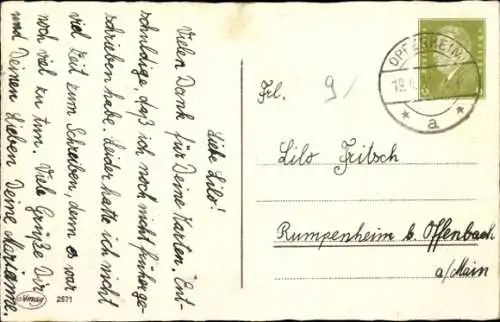 Liebe Lilo!
Vielen Dank für Deine Karten. Ent-
schuldige, daß ich noch nicht früher ge-
schrieben habe. Leider hatte ich nicht
viel Zeit zum Schreiben, denn es war
noch viel zu tun. Viele Grüße Dir
und Deinen Lieben Deine Marianne.
2571
OPPENHEIM
19.
a
Frl.
9
Lilo Fritsch
Rumpenheim b. Offenbach
a/Main